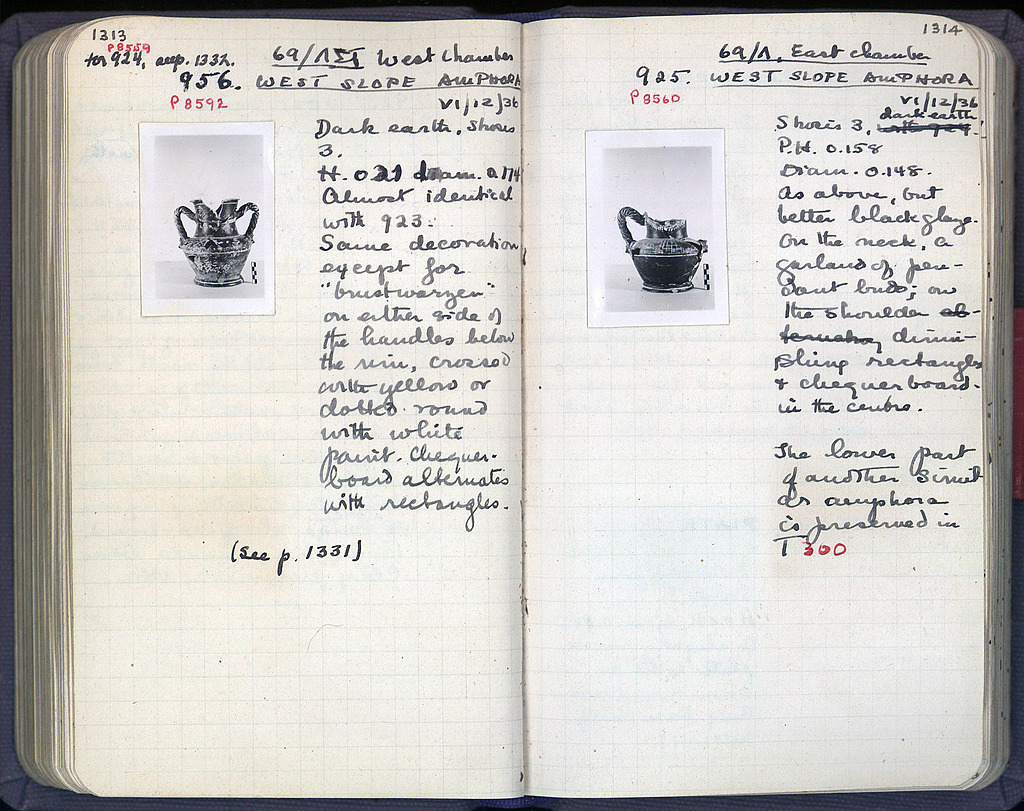 1313
P8559
for 924, see p. 1332.
69/ΛΣΤ West Chamber
956. WEST SLOPE AMPHORA
P 8592
VI/12/36
Dark earth, Shoes
3.
H. 0.21 diam. 0.174
Almost identical
with 923.
Same decoration,
except for
"brustwarzen"
on either side of
the handles below
the rim, crossed
with yellow or
dotted round
with white
paint. Chequer-
board alternates
with rectangles.
(See p. 1331)
1314
69/Λ, East chamber
925. WEST SLOPE AMPHORA
P 8560
VI/12/36
dark earth
Shoes 3, with 924!
P.H. 0.158
Diam. 0.148.
As above, but
better black glaze.
On the neck, a
garland of pen-
dant buds; on
the shoulder al-
ternating dimini-
shing rectangles
& chequerboard-
in the centre.
The lower part
of another simil
ar amphora
is preserved in
T 300